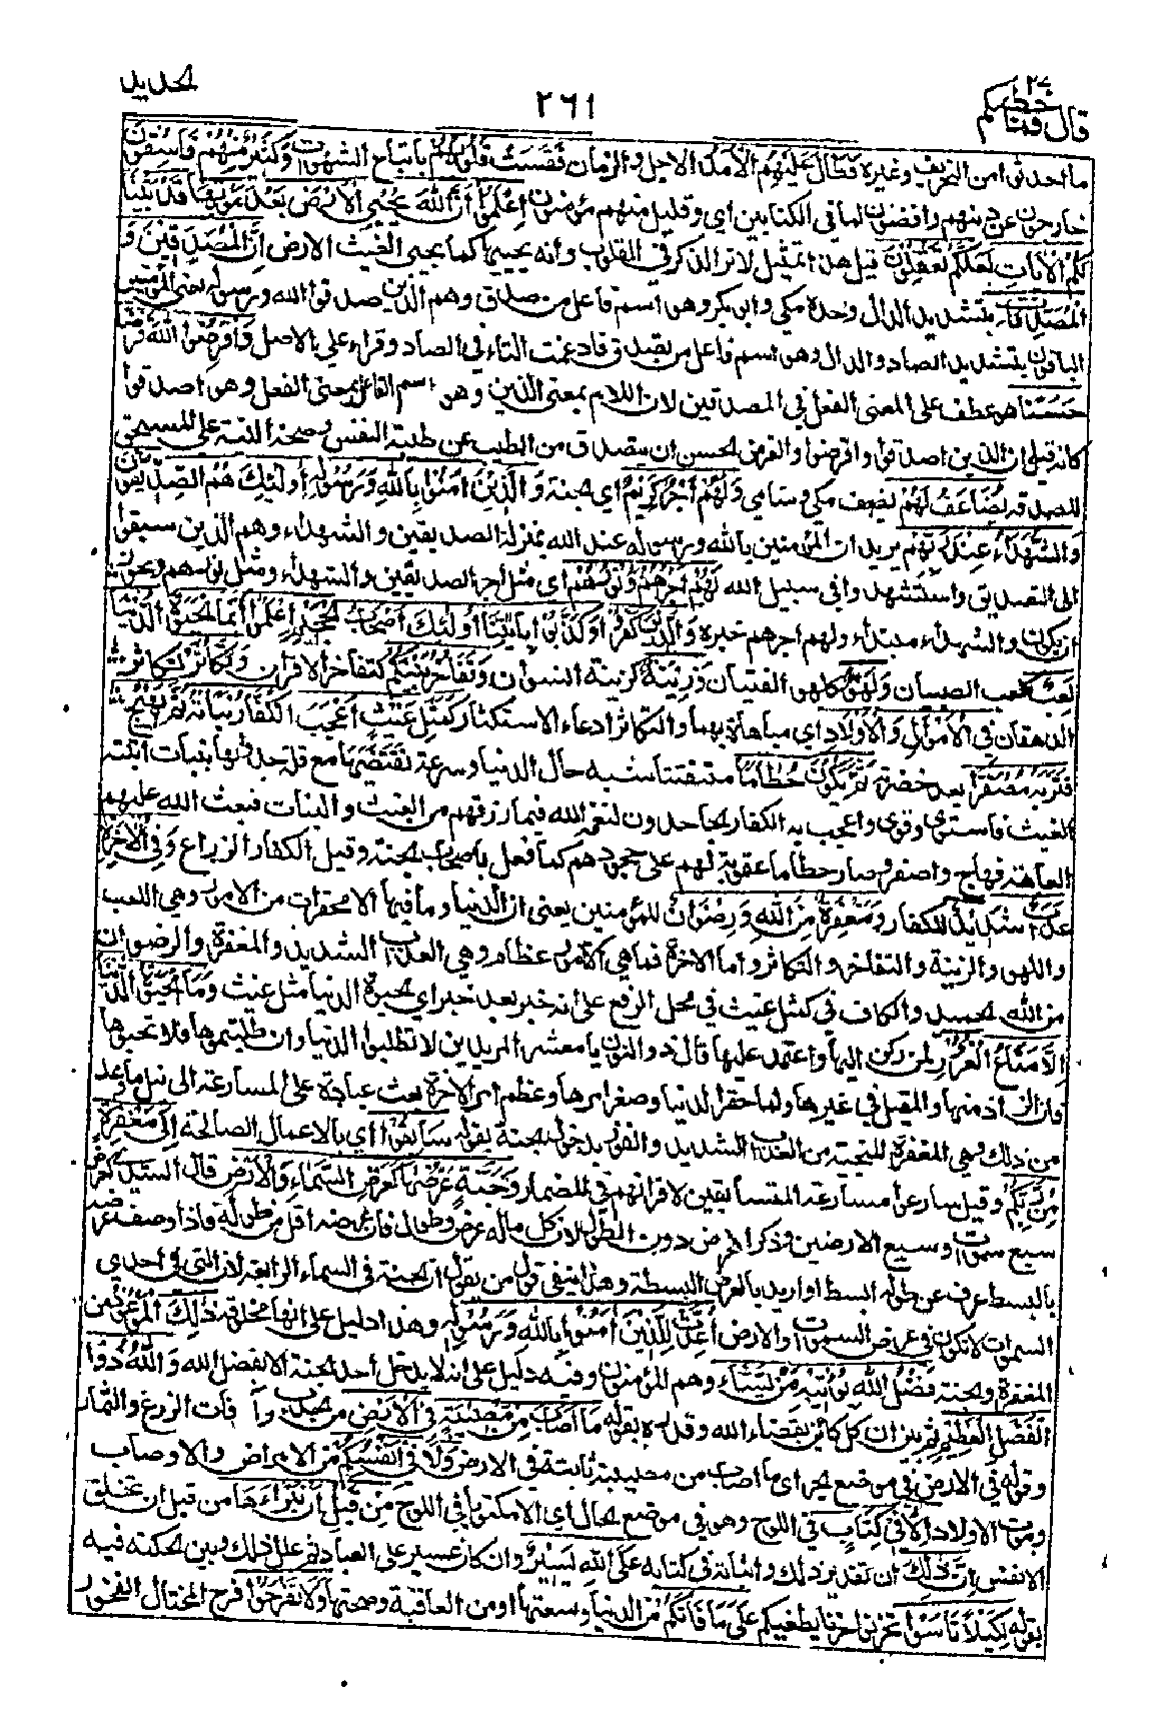 ٢٧
قال فما خطبكم
٢٦١
الحديد
ما احدثوا من التحريف وغيره فَطَالَ عَلَيْهِمُ الْاَمَدُ الاجل والزمان فَقَسَتْ قُلُوْبُهُمْ باتباع الشهوات وَكَثِيْرٌ مِّنْهُمْ فٰسِقُوْنَ
خارجون عن دينهم رافضون لما في الكتابين اي وقليل منهم مؤمنون اِعْلَمُوْا اَنَّ اللّٰهَ يُحْيِي الْاَرْضَ بَعْدَ مَوْتِهَا قَدْ بَيَّنَّا
لَكُمُ الْاٰيٰتِ لَعَلَّكُمْ تَعْقِلُوْنَ قيل هذا تمثيل لاثر الذكر في القلوب وانه يحييها كما يحيي الغيث الارض اِنَّ الْمُصَّدِّقِيْنَ وَ
الْمُصَّدِّقٰتِ بتشديد الدال وحده مكي وابو بكر وهو اسم فاعل من صدق وهم الذين صدقوا الله ورسوله يعني المؤمنين
الباقون بتشديد الصاد والدال وهو اسم فاعل من تصدق فادغمت التاء في الصاد وقرئ على الاصل وَاَقْرَضُوا اللّٰهَ قَرْضًا
حَسَنًا هو عطف على المعنى الفعل في المصدقين لان اللام بمعنى الذين وهو اسم الفاعل بمعنى الفعل وهو اصدقوا
كانه قيل ان الذين اصدقوا واقرضوا والقرض الحسن ان يتصدق من الطيب عن طيبة النفس وصحة النية على المستحق
للصدقة يُضَاعَفُ لَهُمْ يضعف مكي وشامي وَلَهُمْ اَجْرٌ كَرِيْمٌ اي الجنة وَالَّذِيْنَ اٰمَنُوْا بِاللّٰهِ وَرُسُلِهٖ اُولٰٓئِكَ هُمُ الصِّدِّيْقُوْنَ
وَالشُّهَدَآءُ عِنْدَ رَبِّهِمْ يريد ان المؤمنين بالله ورسوله عند الله بمنزلة الصديقين والشهداء وهم الذين سبقوا
الى التصديق واستشهدوا في سبيل الله لَهُمْ اَجْرُهُمْ وَنُوْرُهُمْ اي مثل اجر الصديقين والشهداء ومثل نورهم ويجوز
ان يكون والشهداء مبتداء ولهم اجرهم خبره وَالَّذِيْنَ كَفَرُوْا وَكَذَّبُوْا بِاٰيٰتِنَآ اُولٰٓئِكَ اَصْحٰبُ الْجَحِيْمِ اِعْلَمُوْا اَنَّمَا الْحَيٰوةُ الدُّنْيَا
لَعِبٌ كلعب الصبيان وَلَهْوٌ كلهو الفتيان وَزِيْنَةٌ كزينة النسوان وَتَفَاخُرٌ بَيْنَكُمْ كتفاخر الاقران وَتَكَاثُرٌ كتكاثر
الدهقان فِي الْاَمْوَالِ وَالْاَوْلَادِ اي مباهاة بهما والتكاثر ادعاء الاستكثار كَمَثَلِ غَيْثٍ اَعْجَبَ الْكُفَّارَ نَبَاتُهٗ ثُمَّ يَهِيْجُ
فَتَرٰىهُ مُصْفَرًّا بعد خضرته ثُمَّ يَكُوْنُ حُطَامًا متفتتا شبه حال الدنيا وسرعة تقضيها مع قلة جدوىها بنبات انبته
الغيث فاستوى وقوي واعجب به الكفار الجاحدون لنعمة الله فيما رزقهم من الغيث والنبات فبعث الله عليهم
العاهة فهاج واصفر وصار حطاما عقوبة لهم على جحودهم كما فعل باصحاب الجنة وقيل الكفار الزراع وَفِي الْاٰخِرَةِ
عَذَابٌ شَدِيْدٌ للكفار وَّمَغْفِرَةٌ مِّنَ اللّٰهِ وَرِضْوَانٌ للمؤمنين يعني ان الدنيا وما فيها الا محقرات من الامور وهي اللعب
واللهو والزينة والتفاخر والتكاثر واما الاخرة فما هي الا امور عظام وهي العذاب الشديد والمغفرة والرضوان
من الله الحميد والكاف في كمثل غيث في محل الرفع على انه خبر بعد خبر اي الحيوة الدنيا مثل غيث وَمَا الْحَيٰوةُ الدُّنْيَا
اِلَّا مَتَاعُ الْغُرُوْرِ لمن ركن اليها واعتمد عليها قال ذو النون يا معشر المريدين لا تطلبوا الدنيا وان طلبتموها فلا تحبوها
فان الزاد منها والمقيل في غيرها ولما حقر الدنيا وصغر امرها وعظم امر الاخرة بعث عباده على المسارعة الى نيل ما وعد
من ذلك وهي المغفرة المنجية من العذاب الشديد والفوز بدخول الجنة بقوله سَابِقُوْٓا اي بالاعمال الصالحة اِلٰى مَغْفِرَةٍ
مِّنْ رَّبِّكُمْ وقيل سارعوا مسارعة المتسابقين لاقرانهم في المضمار وَجَنَّةٍ عَرْضُهَا كَعَرْضِ السَّمَآءِ وَالْاَرْضِ قال السدي كعرض
سبع سموات وسبع الارضين وذكر العرض دون الطول لان كل ماله عرض وطول فان عرضه اقل من طوله فاذا وصف عرضه
بالبسطة عرف عن طوله ابسط او اريد بالعرض البسطة وهذا ينفي قول من يقول ان الجنة في السماء الرابعة لان التي في احدى
السموات لا تكون في عرض السموات والارض اُعِدَّتْ لِلَّذِيْنَ اٰمَنُوْا بِاللّٰهِ وَرُسُلِهٖ وهذا دليل على انها مخلوقة ذٰلِكَ الموعود من
المغفرة والجنة فَضْلُ اللّٰهِ يُؤْتِيْهِ مَنْ يَّشَآءُ وهم المؤمنون وفيه دليل على انه لا يدخل احد الجنة الا بفضل الله وَاللّٰهُ ذُو
الْفَضْلِ الْعَظِيْمِ ثم بين ان كل كائن بقضاء الله وقدره بقوله مَآ اَصَابَ مِنْ مُّصِيْبَةٍ فِي الْاَرْضِ من الجدب وآفات الزروع والثمار
وقوله في الارض في موضع الجر اي ما اصاب من مصيبة ثابتة في الارض وَلَا فِيْٓ اَنْفُسِكُمْ من الامراض والاوصاب
وموت الاولاد اِلَّا فِيْ كِتٰبٍ في اللوح وهو في موضع الحال اي الا مكتوبا في اللوح مِّنْ قَبْلِ اَنْ نَّبْرَاَهَا من قبل ان نخلق
الانفس اِنَّ ذٰلِكَ ان تقدير ذلك واثباته في كتابه عَلَى اللّٰهِ يَسِيْرٌ وان كان عسيرا على العباد ثم علل ذلك وبين الحكمة فيه
بقوله لِّكَيْلَا تَاْسَوْا تحزنوا حزنا يطغيكم عَلٰى مَا فَاتَكُمْ من الدنيا وسعتها او من العافية وصحتها وَلَا تَفْرَحُوْا فرح المختال الفخور